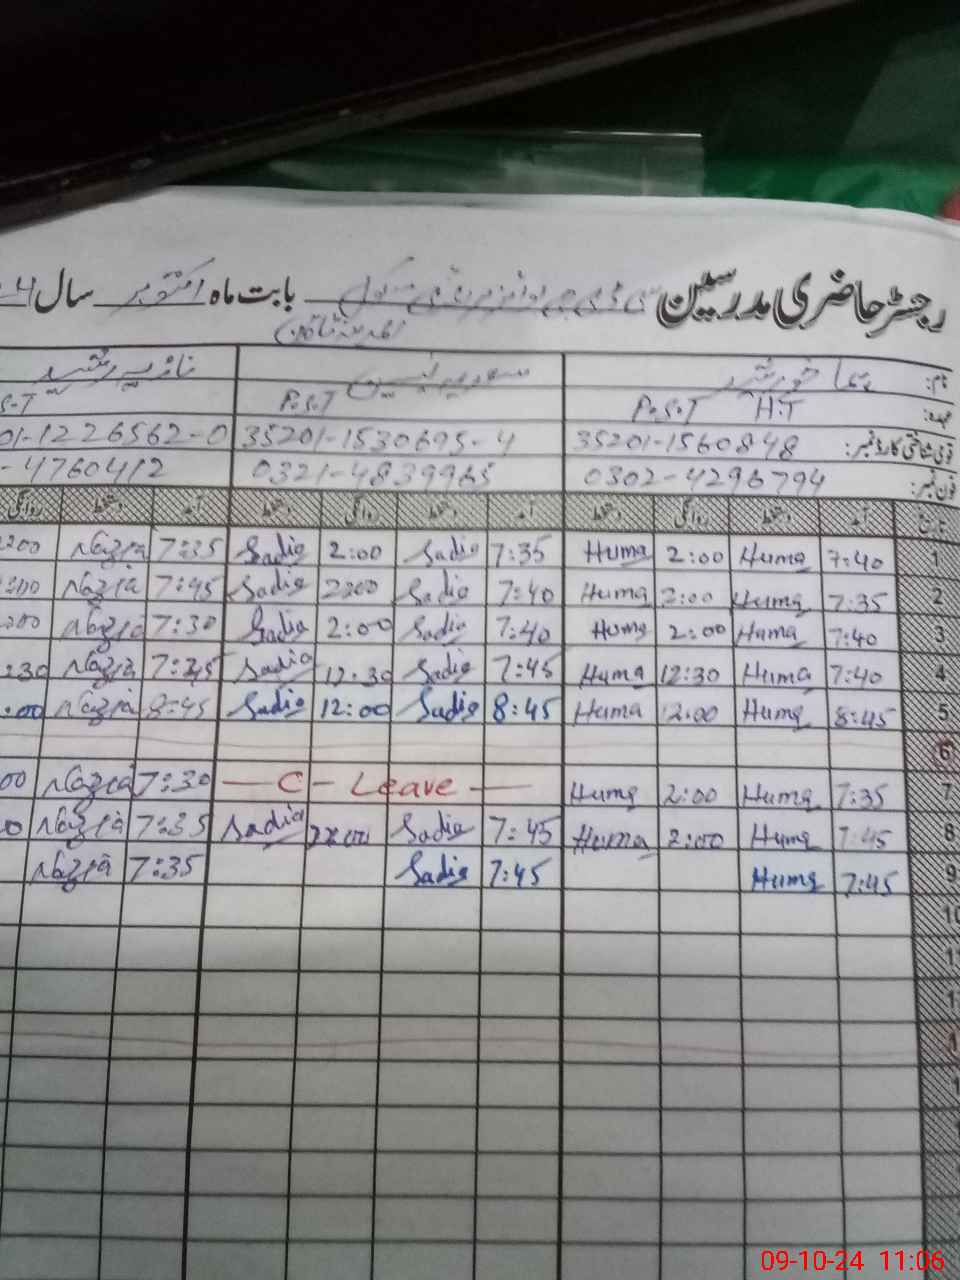 رجسٹر حاضری مدرسین بابت ماہ اکتوبر سال
نام: ہما خورشید سعدیہ یٰسین نازیہ رشید
عہدہ: H.T P.S.T P.S.T S.T
قومی شناختی کارڈ نمبر: 35201-1560848 35201-1530695-4 01-1226562-0
فون نمبر: 0302-4296794 0321-4839965 -4760412
تاریخ آمد دستخط روانگی دستخط آمد دستخط روانگی دستخط آمد دستخط روانگی
1 7:40 Huma 2:00 Huma 7:35 Sadia 2:00 Sadia 7:35 Nazia 200
2 7:35 Huma 2:00 Huma 7:40 Sadia 2:00 Sadia 7:45 Nazia :00
3 7:40 Huma 2:00 Huma 7:40 Sadia 2:00 Sadia 7:30 Nazia 200
4 7:40 Huma 12:30 Huma 7:45 Sadia 12:30 Sadia 7:45 Nazia :30
5 8:45 Huma 12:00 Huma 8:45 Sadia 12:00 Sadia 8:45 Nazia :00
6
7 7:35 Huma 2:00 Huma — C - Leave — 7:30 Nazia 00
8 7:45 Huma 2:00 Huma 7:45 Sadia 2:00 Sadia 7:35 Nazia 0
9 7:45 Huma 7:45 Sadia 7:35 Nazia
10
09-10-24 11:06